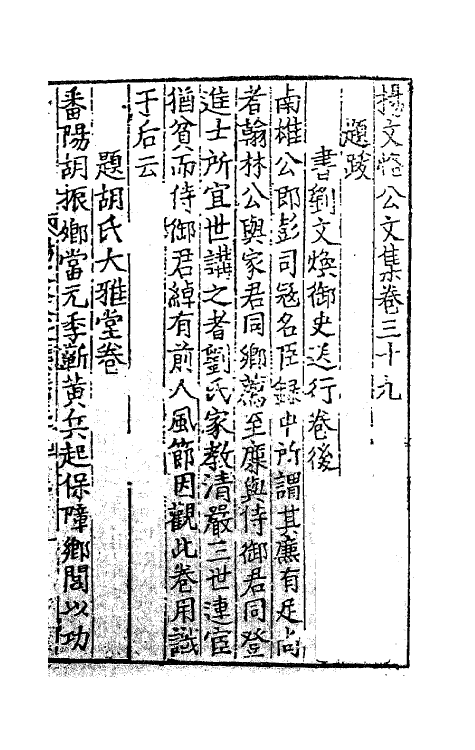 楊文懿公文集卷三十九
題跋
書劉文煥御史送行卷後
南雄公即彭司冦名臣錄中所謂其廉有足尚
者翰林公與家君同鄉薦至廉與侍御君同登
進士所宜世講之者劉氏家教清嚴三世連宦
猶貧而侍御君綽有前人風節因觀此卷用識
于后云
題胡氏大雅堂卷
番陽胡振鄉當元季蘄黃兵起保障鄉閭以功